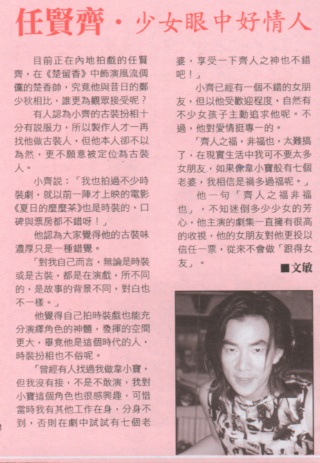 任賢齊・少女眼中好情人
目前正在內地拍戲的任賢
齊，在《楚留香》中飾演風流倜
儻的楚香帥，究竟他與昔日的鄭
少秋相比，誰更為觀眾接受呢？
有人認為小齊的古裝扮相十
分有說服力，所以製作人才一再
找他做古裝人，但他本人卻不以
為然，更不願意被定位為古裝
人。
小齊說：「我也拍過不少時
裝劇，就以前一陣才上映的電影
《夏日的麼麼茶》也是時裝的，口
碑與票房都不錯呀！」
他認為大家覺得他的古裝味
濃厚只是一種錯覺。
「對我自己而言，無論是時裝
或是古裝，都是在演戲，所不同
的，是故事的背景不同，對白也
不一樣。」
他覺得自己拍時裝戲也能充
分演繹角色的神髓，發揮的空間
更大，畢竟他是這個時代的人，
時裝扮相也不俗呢。
「曾經有人找過我做韋小寶，
但我沒有接，不是不敢演，我對
小寶這個角色也很感興趣，可惜
當時我有其他工作在身，分身不
到，否則在劇中試試有七個老
婆，享受一下齊人之神也不錯
吧！」
小齊已經有一個不錯的女朋
友，但以他受歡迎程度，自然有
不少女孩子主動追求他呢。不
過，他對愛情挺專一的。
「齊人之福，非福也，太難搞
了，在現實生活中我可不要太多
女朋友，如果像韋小寶般有七個
老婆，我相信是禍多過福呢。」
他一句「齊人之福非福
也」，不知迷倒多少少女的芳
心，他主演的劇集一直擁有很高
的收視，他的女朋友對他更投以
信任一票，從來不會做「跟得女
友」。
■文敏